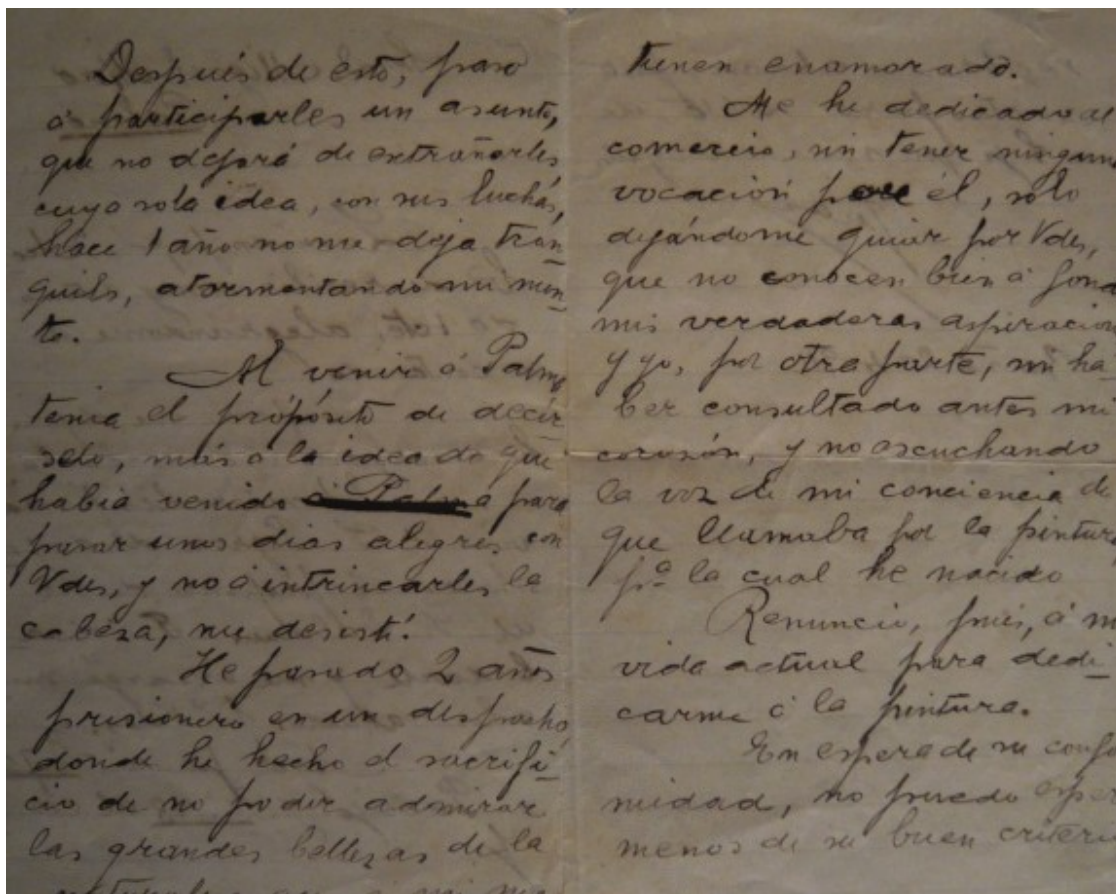 Después de esto, paso
á participarles un asunto,
que no dejará de extrañarles,
cuya sola idea, con sus luchas,
hace 1 año no me deja tran-
quilo, atormentando mi men-
te.
Al venir á Palma
tenia el propósito de decír
selo, más á la idea de que
habia venido á Palma para
pasar unos dias alegres con
Vdes, y no á intrincarles la
cabeza, me desistí.
He pasado 2 años
prisionero en un despacho,
donde he hecho el sacrifi-
cio de no poder admirar
las grandes bellezas de la
tienen enamorado.
Me he dedicado al
comercio, sin tener ninguna
vocación por él, solo
dejándome guiar por Vdes,
que no conocen bien á fond
mis verdaderas aspiracion
y yo, por otra parte, sin ha-
ber consultado antes mi
corazón, y no escuchando
la voz de mi conciencia de
que llamaba por la pintura
pª la cual he nacido
Renuncio, pues, á m
vida actual para dedi-
carme á la pintura.
En espera de su confo
midad, no puedo esper
menos de su buen criterio